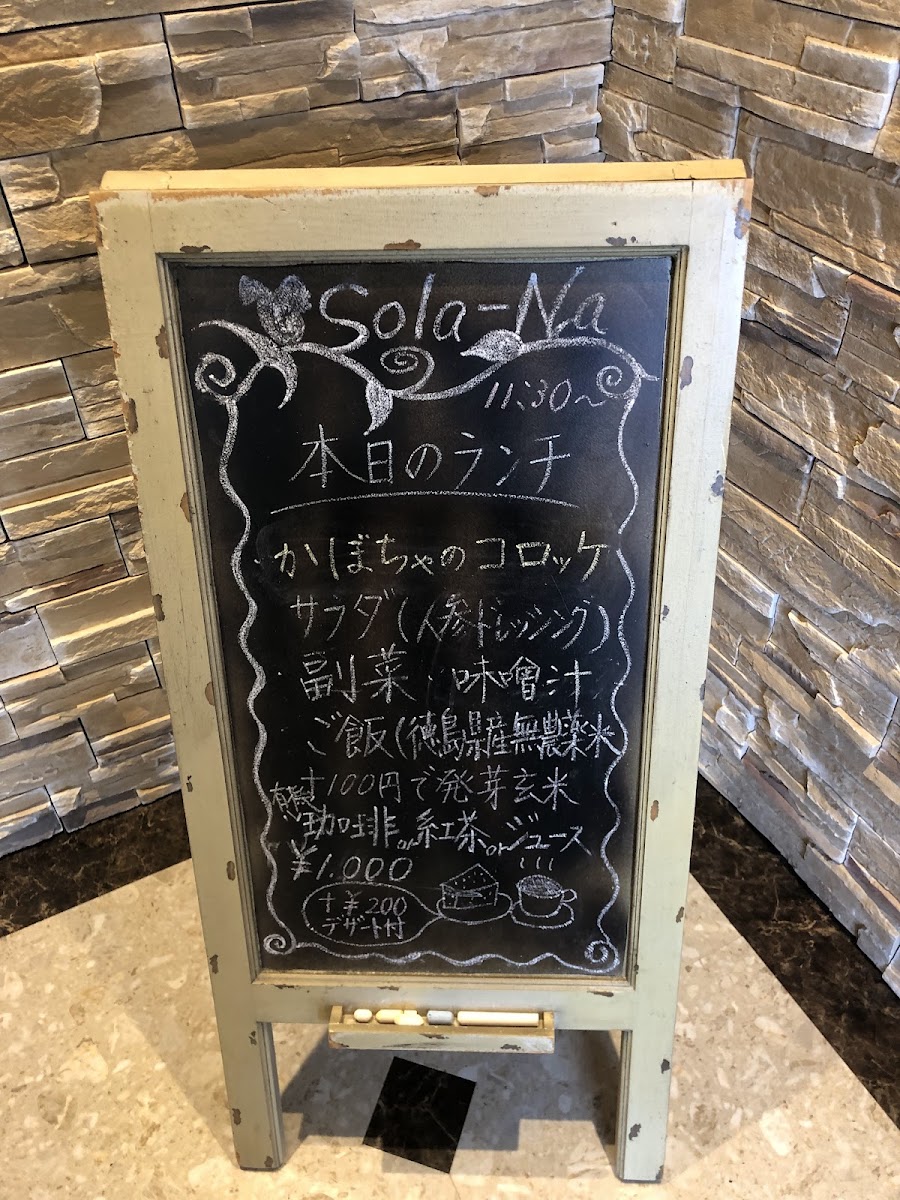 Sola-Na
11:30〜
本日のランチ
かぼちゃのコロッケ
サラダ(人参ドレッシング)
副菜・味噌汁
ご飯(徳島県産無農薬米
+100円で発芽玄米
珈琲or紅茶orジュース
¥1.000
+¥200
デザート付